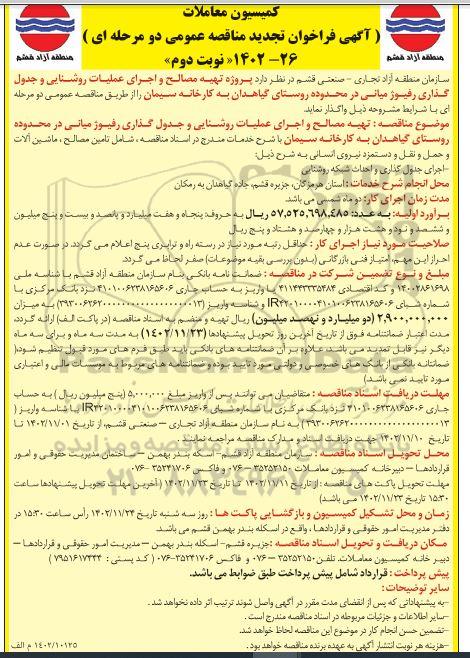 کمیسیون معاملات
( آگهی فراخوان تجدید مناقصه عمومی دو مرحله ای )
۲۶- ۱۴۰۲ «نوبت دوم»
منطقه آزاد قشم
منطقه آزاد قشم
سازمان منطقه آزاد تجاری - صنعتی قشم در نظر دارد پروژه تهیه مصالح و اجرای عملیات روشنایی و جدول
گذاری رفیوژ میانی در محدوده روستای گیاهدان به کارخانه سیمان را از طریق مناقصه عمومی دو مرحله
ای با شرایط مشروحه ذیل واگذار نماید
موضوع مناقصه : تهیه مصالح و اجرای عملیات روشنایی و جدول گذاری رفیوژ میانی در محدوده
روستای گیاهدان به کارخانه سیمان با شرح خدمات مندرج در اسناد مناقصه، شامل تامین مصالح، ماشین آلات
و حمل و نقل و دستمزد نیروی انسانی به شرح ذیل:
-اجرای جدول گذاری و احداث شبکه روشنایی
محل انجام شرح خدمات : استان هرمزگان، جزیره قشم، جاده گیاهدان به رمکان
مدت زمان اجرای کار: دو ماه شمسی می باشد.
برآورد اولیه: به عدد: ۵۷,۵۲۵,۶۹۸,۴۸۵ ریال به حروف: پنجاه و هفت میلیارد و پانصد و بیست و پنج میلیون
و ششصد و نود و هشت هزار و چهارصد و هشتاد و پنج ریال
صلاحیت مورد نیاز اجرای کار : حداقل رتبه مورد نیاز در رسته راه و ترابری پنج اعلام می گردد. در صورت عدم
احراز این مهم، امتیاز فنی بازرگانی (بدون بررسی بقیه موضوعات) صفر لحاظ می گردد.
مبلغ و نوع تضمین شرکت در مناقصه : ضمانت نامه بانکی بنام سازمان منطقه آزاد قشم با شناسه ملی
۱۴۰۰۲۸۶۱۶۹۸ و کد اقتصادی ۴۱۱۴۴۳۳۳۵۴۸۴ یا واریز به حساب جاری ۴۱۰۱۰۰۶۲۳۸۱۶۵۶۰۶ نزد بانک مرکزی با
شماره شبای و شناسه واریز به میزان
۲,۹۰۰,۰۰۰,۰۰۰ (دو میلیارد و نهصد میلیون) ریال تهیه و منضم به اسناد مناقصه (در پاکت الف) ارائه گردد،
مدت اعتبار ضمانتنامه فوق از تاریخ آخرین روز تحویل پیشنهادها (۱۴۰۲/۱۱/۲۳) به مدت سه ماه و برای سه ماه
دیگر نیز قابل تمدید می باشد، علاوه بر آن ضمانتنامه های بانکی باید طبق فرم های مورد قبول تنظیم شود(
ضمانتنامه بانکی از بانک های خصوصی و دولتی مورد تایید بوده و ضمانتنامه های مربوط به موسسات مالی و اعتباری
مورد تایید نمی باشد.)
مهلت دریافت اسناد مناقصه : متقاضیان می توانند پس از واریز مبلغ ۵,۰۰۰,۰۰۰ (پنج میلیون ریال) به حساب
جاری ۴۱۰۱۰۰۶۲۳۸۱۶۵۶۰۶ نزد بانک مرکزی با شماره شبای با شناسه واریز (
) به نام سازمان منطقه آزاد تجاری – صنعتی قشم، از تاریخ ۱۴۰۲/۱۱/۰۱ تا
تاریخ ۱۴۰۲/۱۱/۱۰ جهت دریافت اسناد و مدارک مناقصه مراجعه نمایند
محل تحویل اسناد مناقصه : سازمان منطقه آزاد قشم- اسکله بندر بهمن – ساختمان مدیریت حقوقی و امور
قراردادها – دبیرخانه کمیسیون معاملات ۳۵۲۵۲۱۵۰ -۰۷۶ و فاکس ۳۵۲۴۱۷۰۶ -۰۷۶
مهلت تحویل پاکت های مناقصه : از تاریخ ۱۴۰۲/۱۱/۱۱ تا تاریخ ۱۴۰۲/۱۱/۲۳ ( آخرین مهلت تحویل پیشنهادها ساعت
۱۵:۳۰ تاریخ ۱۴۰۲/۱۱/۲۳ می باشد)
زمان و محل تشکیل کمیسیون و بازگشایی پاکت ها : روز سه شنبه تاریخ ۱۴۰۲/۱۱/۲۴ رأس ساعت ۱۵:۳۰ در
دفتر مدیریت امور حقوقی و قراردادها، واقع در اسکله بندر بهمن قشم می باشد.
مکان دریافت و تحویل اسناد مناقصه :جزیره قشم- اسکله بندر بهمن – مدیریت امور حقوقی و قراردادها –
دبیرخانه کمیسیون معاملات. تلفن: ۳۵۲۵۲۱۵۰-۰۷۶ و فاکس ۳۵۲۴۱۷۰۶-۰۷۶ ( کد پستی : ۷۹۵۱۶۱۷۴۳۴ )
پیش پرداخت: قرارداد شامل پیش پرداخت طبق ضوابط می باشد.
سایر توضیحات:
-به پیشنهاداتی که پس از انقضای مدت مقرر در آگهی واصل شوند ترتیب اثر داده نخواهد شد.
-سایر اطلاعات و جزئیات مربوطه در اسناد مناقصه مندرج است .
-تضمین حسن انجام کار در موضوع این مناقصه لحاظ خواهد شد.
-هزینه هر نوبت انتشار آگهی به عهده برنده مناقصه خواهد بود.
۱۴۰۲/۱۰۱۲۵ م الف